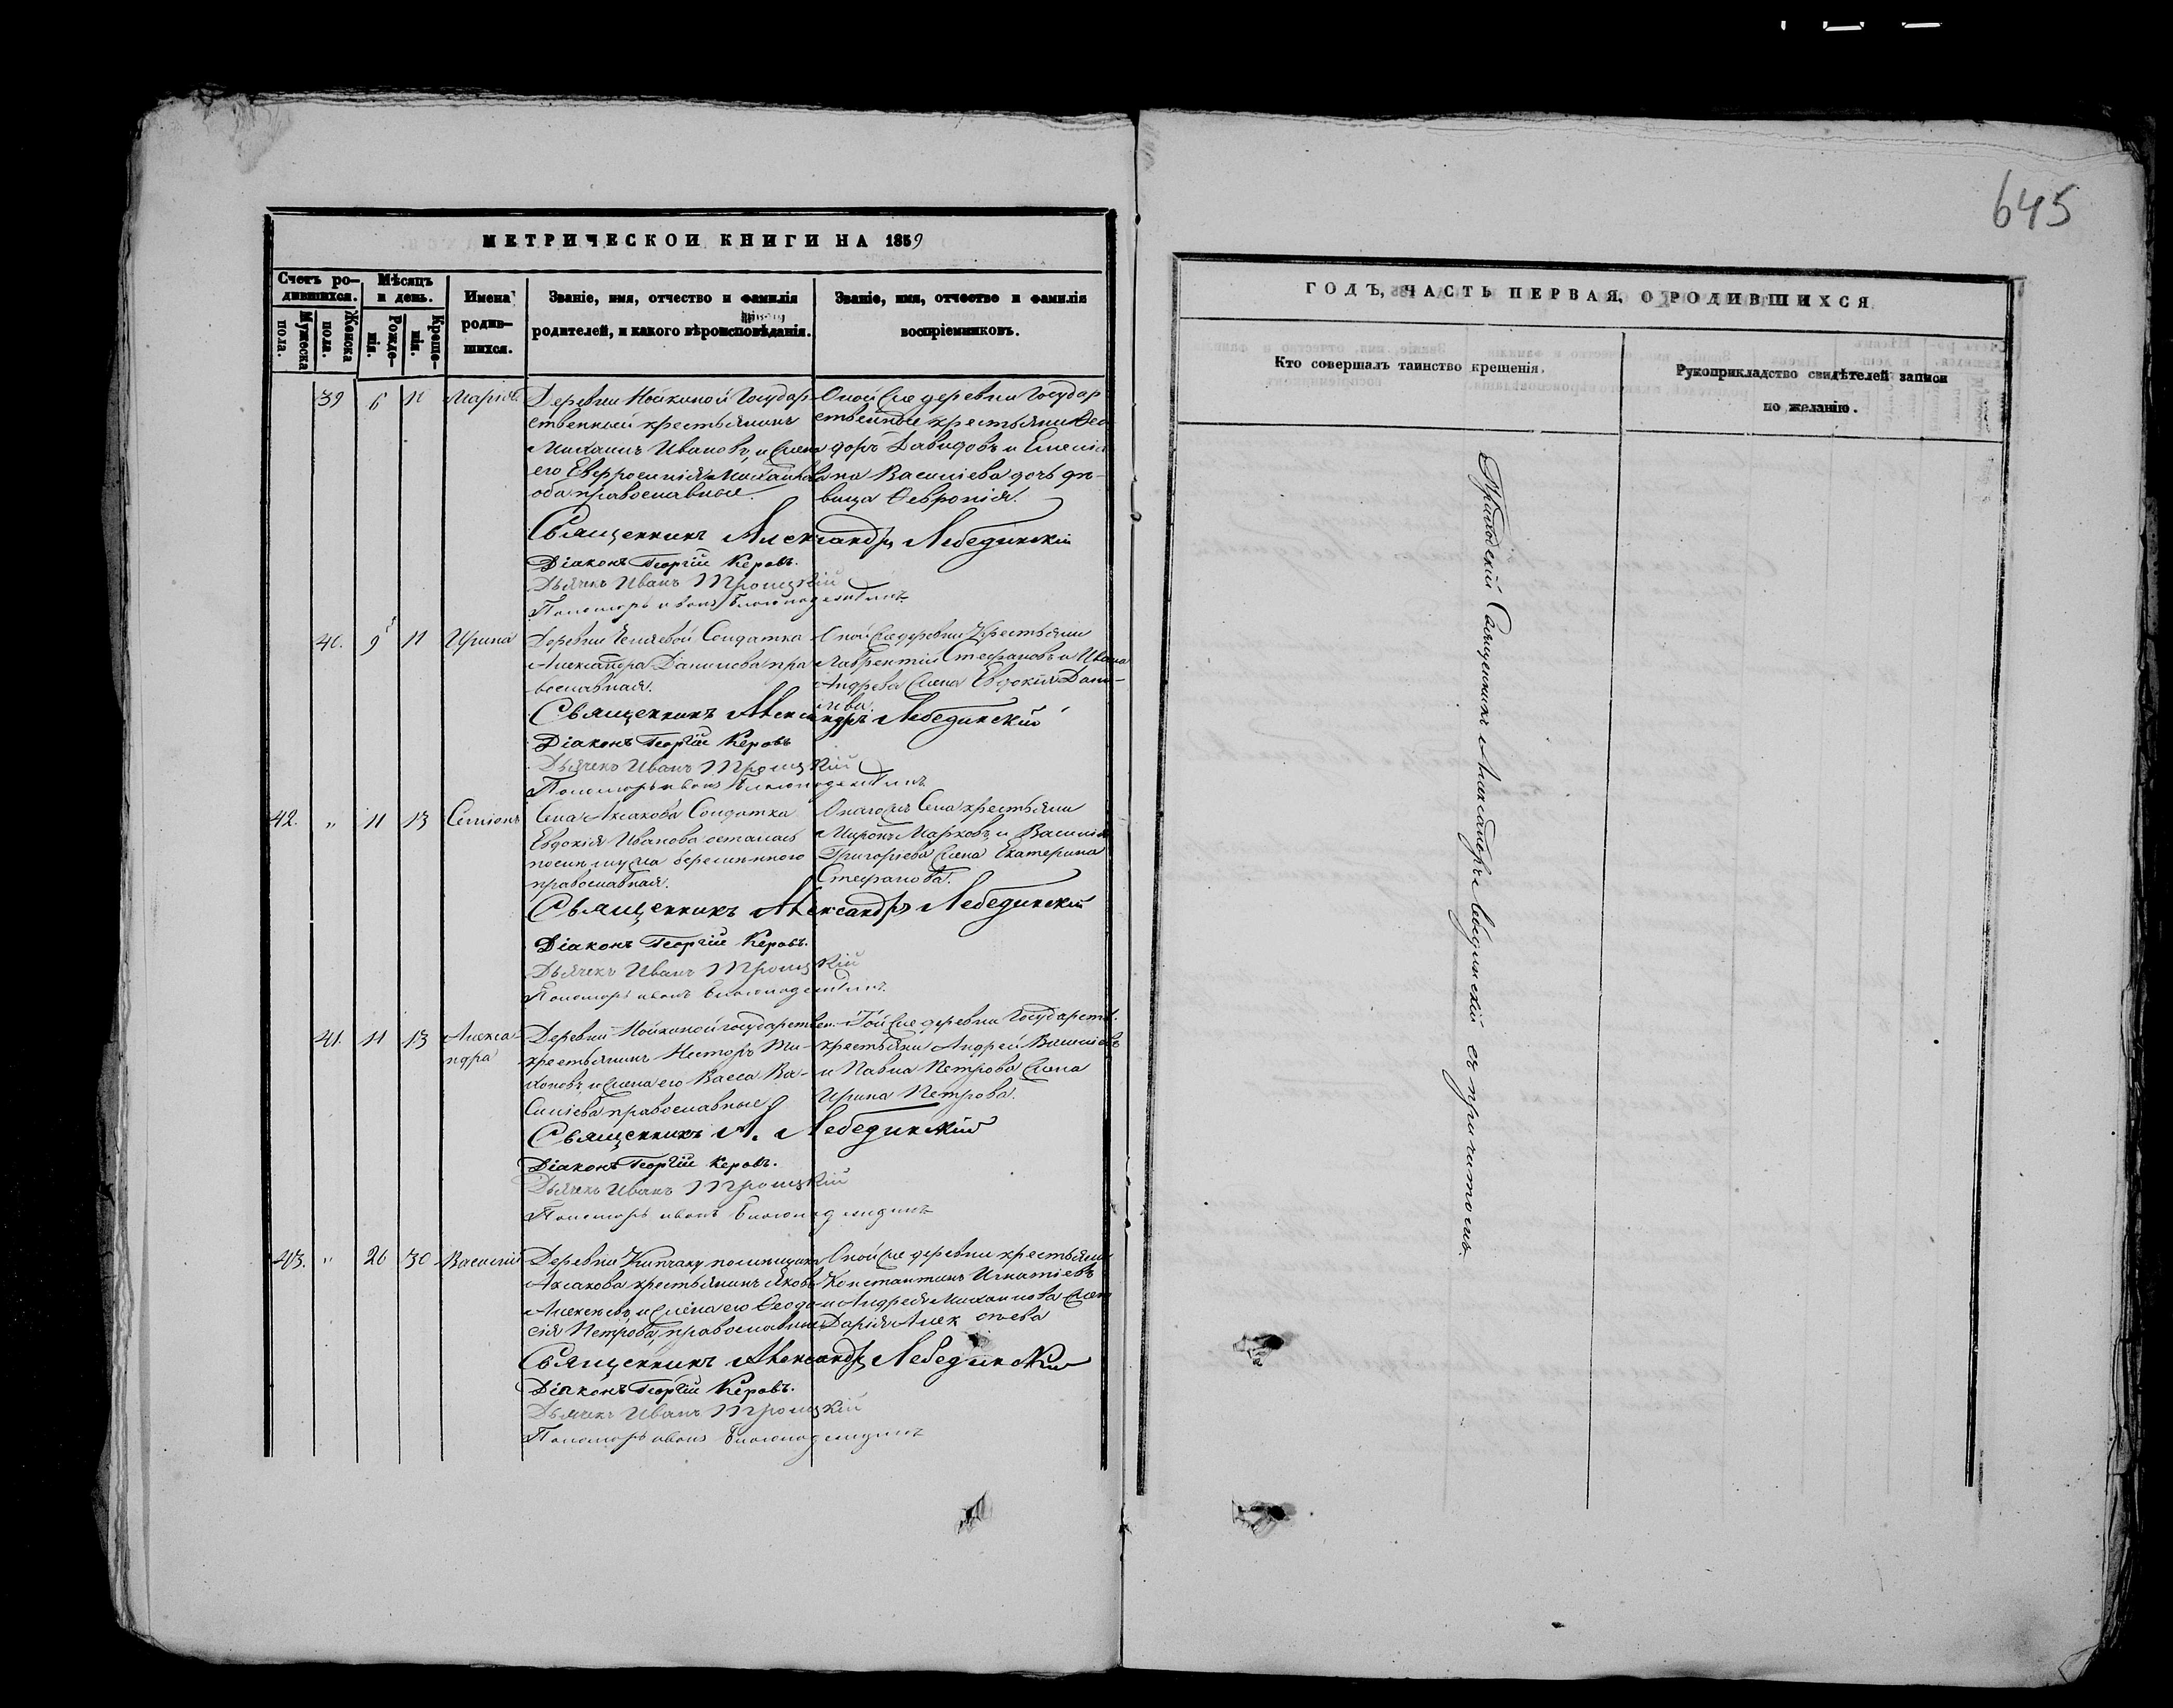 645
МЕТРИЧЕСКОЙ КНИГИ НА 1859
Счетъ родившихся.
Мѣсяцъ и день.
Мужеска пола.
Женска пола.
Рожденія.
Крещенія.
Имена родившихся.
Званіе, имя, отчество и фамилія
родителей, и какого вѣроисповѣданія.
Званіе, имя, отчество и фамилія
воспріемниковъ.
39 6 11 Марія
Деревни Государ-
ственный крестьянинъ
Михаилъ Ивановъ, и жена
его Евфросинія Михайлова
оба православные.
Оной же деревни Государ
ственные крестьяни Ѳео
доръ Давидовъ и Емелія
на Василіева дочь дѣ-
вица Ѳевронія.
Священникъ Александръ Лебединскій
Діаконъ Георгій Керовъ.
Дьячекъ Иванъ Троицкій
Пономарь иванъ
40. 9 11 Ирина
Деревни Солдатка
Александра Данилова пра
вославная.
Оной же деревни Крестьяни
Лаврентій Стефановъ и Ивана
Андреева жена Евдокія Дани-
лова.
Священникъ Александръ Лебединскій
Діаконъ Георгій Керовъ
Дьячекъ Иванъ Троицкій
Пономарь иванъ
42. „ 11 13 Симіонъ
Села Аксакова Солдатка
Евдокія Иванова осталась
послѣ мужа беременною
православная.
Онагожъ Села крестьяни
Миронъ Марковъ, и Василія
Григоріева жена Екатерина
Стефанова.
Священникъ Александръ Лебединскій
Діаконъ Георгій Керовъ.
Дьячекъ Иванъ Троицкій
Пономарь иванъ
41. 11 13 Алекса-
ндра
Деревни государствен.
крестьянинъ Несторъ Ти-
хоновъ и жена его Васса Ва-
силіева православные
Той же деревни Государств.
крестьяни Андрей Василіевъ
и Павла Петрова жена
Ирина Петрова.
Священникъ А. Лебединскій
Діаконъ Георгій Керовъ.
Дьячекъ Иванъ Троицкій
Пономарь иванъ
43. „ 26 30 Василій
Деревни Кипчаку помещика
Аксакова крестьянинъ Яковъ
Алексѣевъ, и жена его Ѳеодо
сія Петрова, православные
Оной же деревни крестьяни
Константинъ Игнатіевъ
и Андрея Михаилова жена
Дарія Алексѣева
Священникъ Александръ Лебединскій
Діаконъ Георгій Керовъ.
Дьячекъ Иванъ Троицкій
Пономарь иванъ
ГОДЪ, ЧАСТЬ ПЕРВАЯ, О РОДИВШИХСЯ
Кто совершалъ таинство крещенія.
Рукоприкладство свидѣтелей записи
по желанію.
Приходскій Священникъ Александръ Лебединскій съ причтомъ.